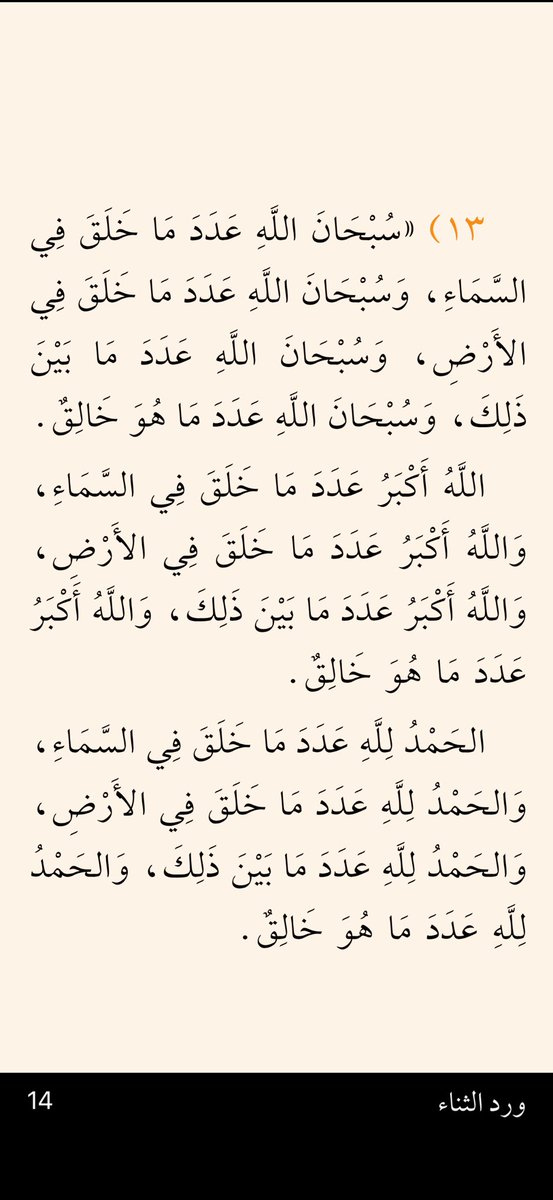 ١٣) «سُبْحَانَ اللَّهِ عَدَدَ مَا خَلَقَ فِي
السَّمَاءِ، وَسُبْحَانَ اللَّهِ عَدَدَ مَا خَلَقَ فِي
الأَرْضِ، وَسُبْحَانَ اللَّهِ عَدَدَ مَا بَيْنَ
ذَلِكَ، وَسُبْحَانَ اللَّهِ عَدَدَ مَا هُوَ خَالِقٌ.
اللَّهُ أَكْبَرُ عَدَدَ مَا خَلَقَ فِي السَّمَاءِ،
وَاللَّهُ أَكْبَرُ عَدَدَ مَا خَلَقَ فِي الأَرْضِ،
وَاللَّهُ أَكْبَرُ عَدَدَ مَا بَيْنَ ذَلِكَ، وَاللَّهُ أَكْبَرُ
عَدَدَ مَا هُوَ خَالِقٌ.
الحَمْدُ لِلَّهِ عَدَدَ مَا خَلَقَ فِي السَّمَاءِ،
وَالحَمْدُ لِلَّهِ عَدَدَ مَا خَلَقَ فِي الأَرْضِ،
وَالحَمْدُ لِلَّهِ عَدَدَ مَا بَيْنَ ذَلِكَ، وَالحَمْدُ
لِلَّهِ عَدَدَ مَا هُوَ خَالِقٌ.
ورد الثناء 14